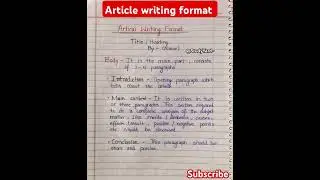 Article writing format
Article Writing Format
Title / Heading
By :- (Name)
Body - It is the main part, consists
of 3-4 paragraphs
Introduction - Opening paragraph which
talks about the
Main content - It is written in two
or three paragraphs. This section
to do a complete analysis of the
matter - like merits / demerits, causes,
effects / result, positive / negative points
etc should be
Conclusion - This paragraph should be
short and
Subscribe